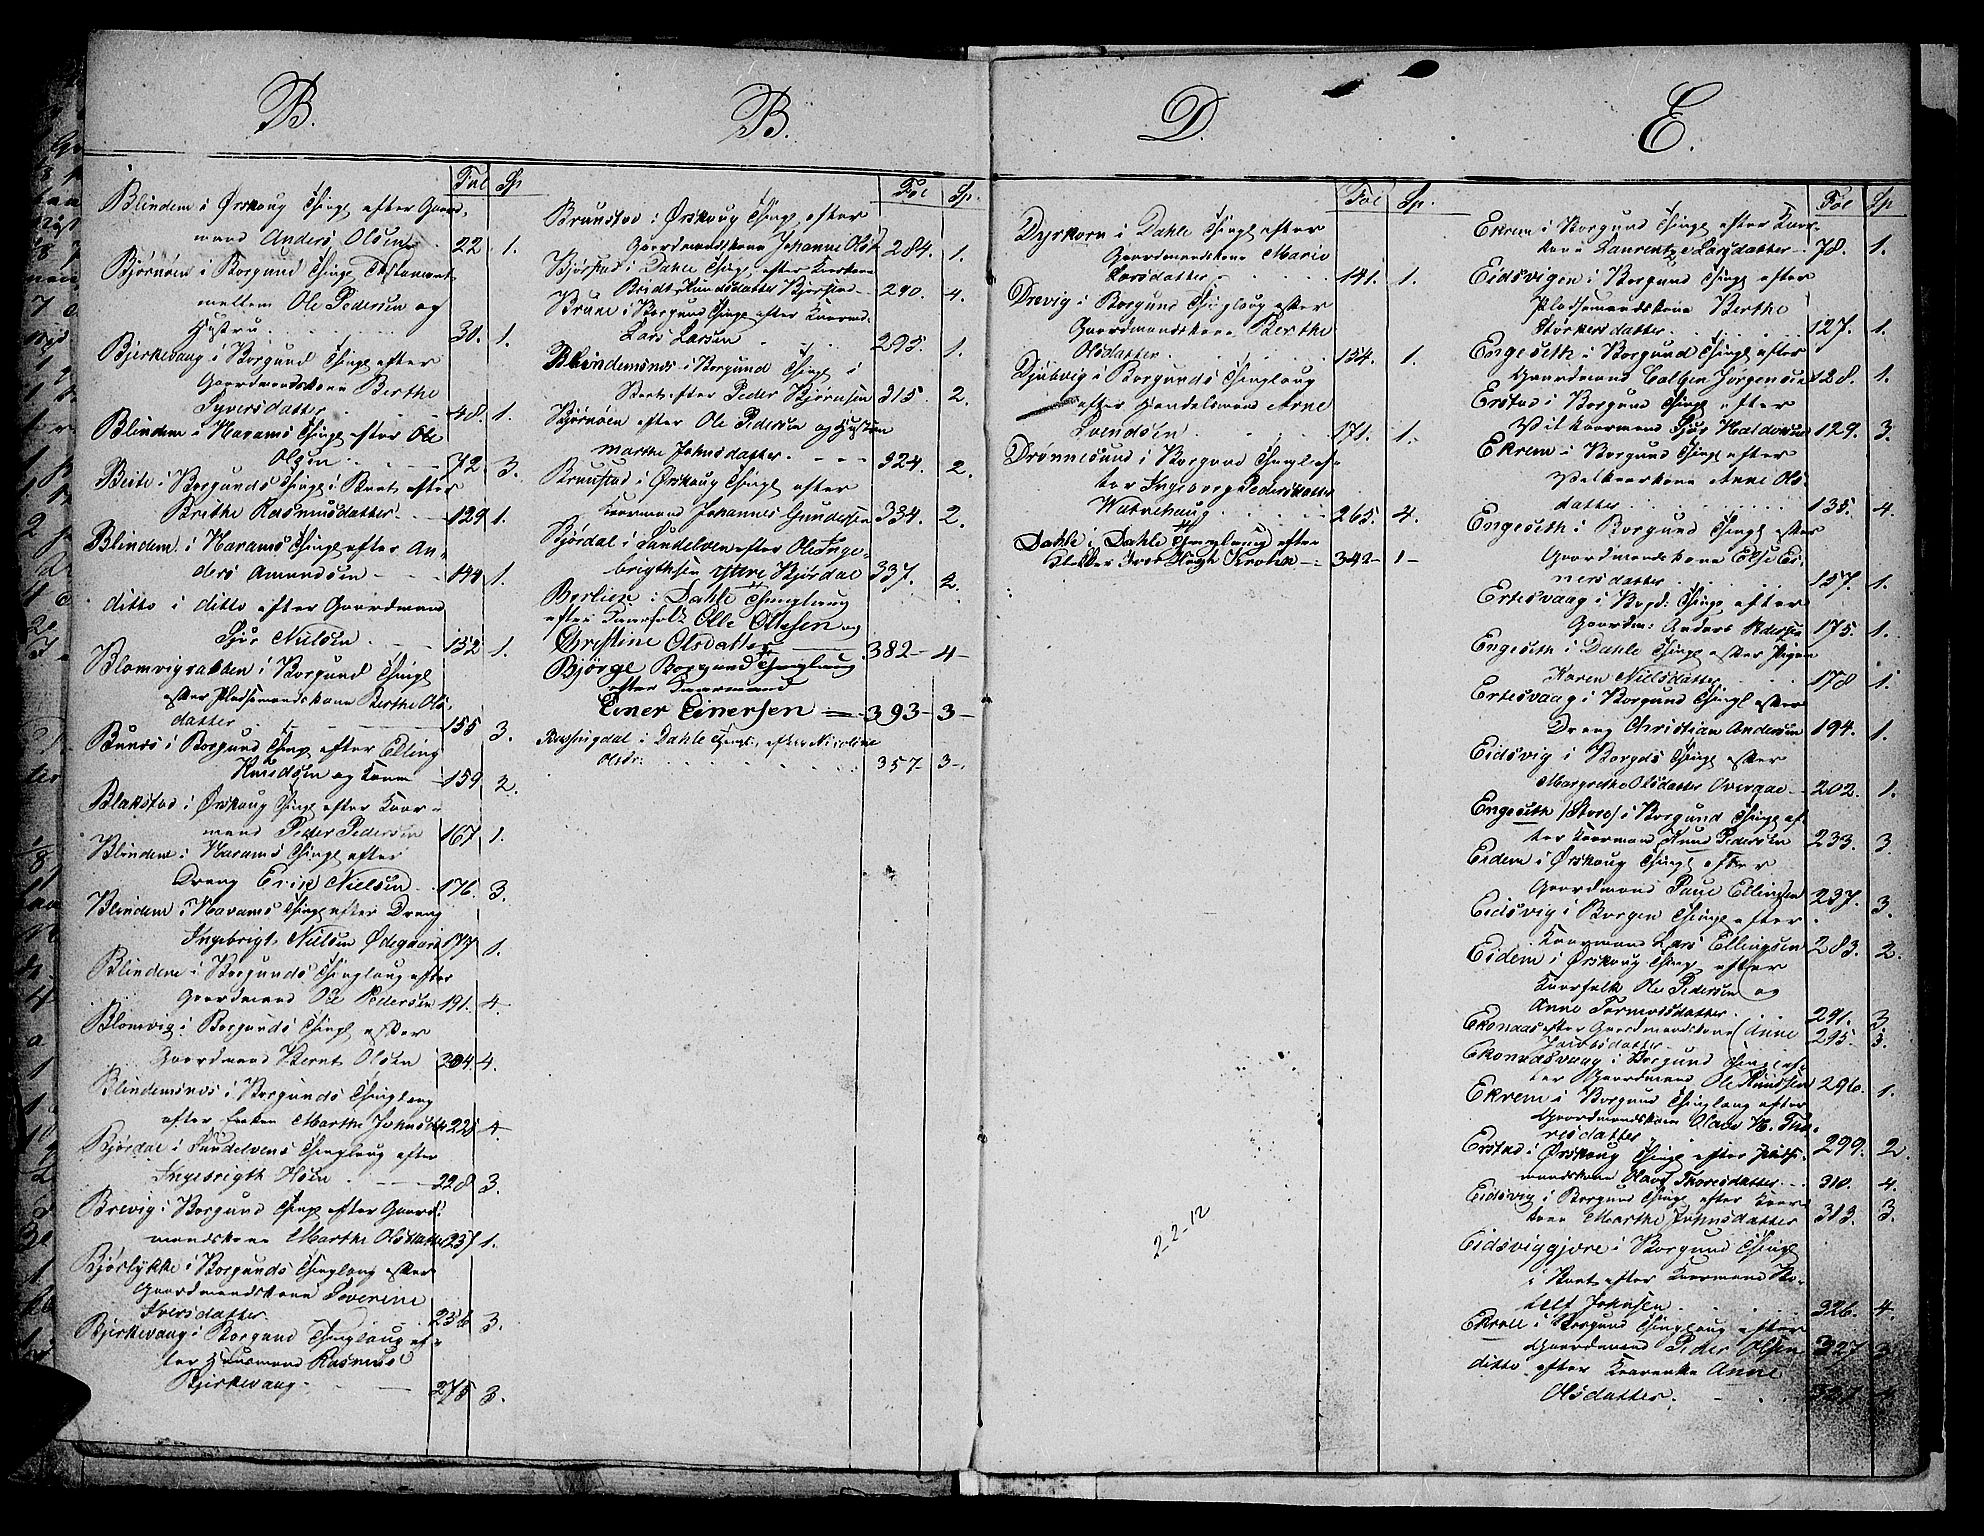 B.
Fol Sp
Blindem i Ørskoug Thingl efter Gaard-
mand Anders Olsen 22 1.
Bjørnøen i Borgund Thingl Testament
mellem Ole Pedersen og
Hustru 30. 1.
Bjerkevaag i Borgund Thingl efter
Gaardmandskone Berthe
Syversdatter 48. 1.
Blindem i Harams Thingl efter Ole
Olsen 72. 3.
Beite i Borgunds Thingl i Bret efter
Brithe Rasmusdatter 129 1.
Blindem i Harams Thingl efter An-
ders Amundsen 144 1.
ditto i ditto efter Gaardmand
Sjur Nielsen 152 1.
Blomvigrabben i Borgund Thingl
efter Pladsmandskone Berthe Ols-
datter 155 3.
Bunæs i Borgund Thingl efter Elling
Knudsen og Kone 159. 2.
Blakstad i Ørskoug Thingl efter Kaar-
mand Peder Pedersen 167 1.
Blindem i Harams Thingl efter
Dreng Erik Nielsen 176 3.
Blindem i Harams Thingl efter Dreng
Ingebrigt Nielsen Ødegaard 177 1.
Blindem i Borgunds Thinglaug efter
Gaardmand Ole Pedersen 191. 4.
Blomvig i Borgunds Thingl efter
Gaardmand Bernt Olsen 204. 4.
Blindemsnes i Borgunds Thinglaug
efter Enken Marthe Johnsdtr 225 4.
Bjørdal i Sundelvens Thinglaug efter
Ingebrigth Olsen 228 3.
Brevig i Borgund Thingl efter Gaard-
mandskone Marthe Olsdatter 237 1.
Bjørlykke i Borgunds Thinglaug efter
Gaardmandskone Severine
Iversdatter 23 3.
Bjerkevaag i Borgund Thinglaug ef-
ter Huusmand Rasmus
Bjerkevaag 275 3.
B.
Fol Sp.
Brunstad i Ørskoug Thingl efter
Gaardmandskone Johanne Olsd 284. 1.
Bjørstad i Dahle Thingl efter Kaarkone
Berdt Knudsdatter Bjørstad 290. 4.
Brune i Borgund Thingl efter Kaarmd.
Lars Larsen 295. 1.
Blindemsnes i Borgund Thingl i
Bret efter Peder Bjørnsen 315. 2.
Bjørnøen efter Ole Pedersen og Hustru
Marthe Johnsdatter 324. 2.
Brunstad i Ørskoug Thingl efter
Kaarmand Johannes Gundersen 334. 2.
Bjørdal i Sundelven efter Ole Inge-
brigthsen Bjørdal 337. 2.
Berlien i Dahle Thinglaug
efter Kaarfolk Ole Olesen og
Christine Olsdatter 382 4
Bjørge Borgund Thinglaug
efter Kaarmand
Einer Einersen 393 3
i Dahle Thingl. efter Nicoline
Olsdr. 357 3
D.
Fol Sp.
Dyrkorn i Dahle Thingl efter
Gaardmandskone Marie
Larsdatter 141. 1.
Drevig i Borgund Thinglaug efter
Gaardmandskone Berthe
Olsdatter 154. 1.
Djubvig i Borgunds Thinglaug
efter Handelsmand Arne
Svendsen 171. 1.
Drønnesund i Borgund Thingl ef-
ter Ingeborg Pedersdatter
Watnehaug 265. 4.
Dahle i Dahle Thinglaug efter
Klokker Iver Høgh Krohn 342 1
2-2-12
E.
Fol Sp
Ekrem i Borgund Thingl efter Kaar-
kone Laurentze Larsdatter 78. 1.
Eidsvigen i Borgund Thingl efter
Pladsmandskone Berthe
Størkersdatter 127. 1.
Engeseth i Borgund Thingl efter
Gaardmand Jørgensen 128. 1.
Erstad i Borgund Thingl efter
Vilkaarmand Sjur Haldorsen 129. 3.
Ekrem i Borgund Thingl efter
Vilkaarkone Anne Ols-
datter 135. 4.
Engeseth i Borgund Thingl efter
Gaardmandskone Else Ei-
nersdatter 157. 1.
Ertesvaag i Borgd: Thingl efter
Gaardm: Anders Pedersen 175. 1.
Engeseth i Dahle Thingl efter Pigen
Karen Nielsdatter 178 1.
Ertesvaag i Borgund Thingl efter
Dreng Christian Andersen 194. 1.
Eidsvig i Borgds Thingl efter
Margrethe Olsdatter Overgae 202. 1.
Engeseth (Store) i Borgund Thingl ef-
ter Kaarmand Knud Pedersen 233. 3.
Eidem i Ørskoug Thingl efter
Gaardmand Paul Ellingsen 237. 3.
Eidsvig i Borgen Thingl efter
Kaarmand Lars Ellingsen 283. 2.
Eidem i Ørskoug Thingl efter
Kaarfolk Ole Pedersen og
Anne Tormodsdatter 291. 3
Ekonaas efter Gaardmandskone Anne
Jacobsdatter 295. 3.
Ekornæsvaag i Borgund Thingl ef-
ter Gaardmand Ole Knudsen 296. 1.
Ekrem i Borgund Thinglaug efter
Gaardmandskone Olave H. Tho-
resdatter 299. 2.
Erstad i Ørskoug Thingl efter Plads-
mandskone Olave Thoresdatter 310. 4.
Eidsvig i Borgund Thingl efter Kaar-
kone Marthe Johnsdatter 313. 3.
Eidsviggjære i Borgund Thingl
i Bret efter Kaarmand Bo-
telf Johnsen 326. 4.
Ekroll i Borgund Thinglaug efter
Gaardmand Peder Olsen 327 3
ditto efter Kaarenke Anne
Olsdatter